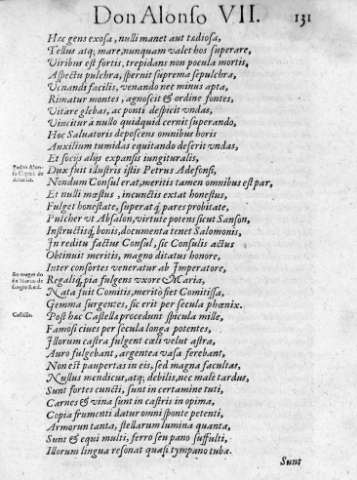 Don Alonso VII. 131
Hæc gens exosa, nulli manet aut tædiosa,
Tellus atq; mare, nunquam valet hos superare,
Viribus est fortis, trepidans non pocula mortis,
Aspectu pulchra, spernit suprema sepulchra,
Venandi facilis, venando nec minus apta,
Rimatur montes, agnoscit & ordine fontes,
Vt tære glebas, ac ponti despicit vndas,
Vincitur à nullo quidquid cernit superando,
Hoc Saluatoris deposcens omnibus horis
Auxilium tumidas equitando deserit vndas,
Et socijs alijs expansis iungitur alis,
Dux fuit illustris istis Petrus Adefonsi,
Nondum Consul erat, meritis tamen omnibus est par,
Et nulli mœstus, incunctis extat honestus,
Fulget honestate, superatq; pares probitate,
Pulcher vt Absalon, virtute potens sicut Sanson,
Instructisq; bonis, documenta tenet Salomonis,
In reditu factus Consul, sic Consulis actus
Obtinuit meritis, magno ditatus honore,
Inter consortes veneratur ab Imperatore,
Regaliq; pia fulgens vxore Maria,
Nata fuit Comitis, merito fiet Comitissa,
Gemma surgentes, sic erit per secula phœnix.
Castilla.
Post hæc Castella procedunt spicula mille,
Famosi ciues per secula longa potentes,
Illorum castra fulgent cœli velut astra,
Auro fulgebant, argentea vasa ferebant,
Non est paupertas in eis, sed magna facultas,
Nullus mendicus, atq; debilis, nec malè tardus,
Sunt fortes cuncti, sunt in certamine tuti,
Carnes & vina sunt in castris in opima,
Copia frumenti datur omni sponte petenti,
Armorum tanta, stellarum lumina quanta,
Sunt & equi multi, ferro seu pano suffulti,
Illorum lingua resonat quasi tympano tubæ.
Sunt